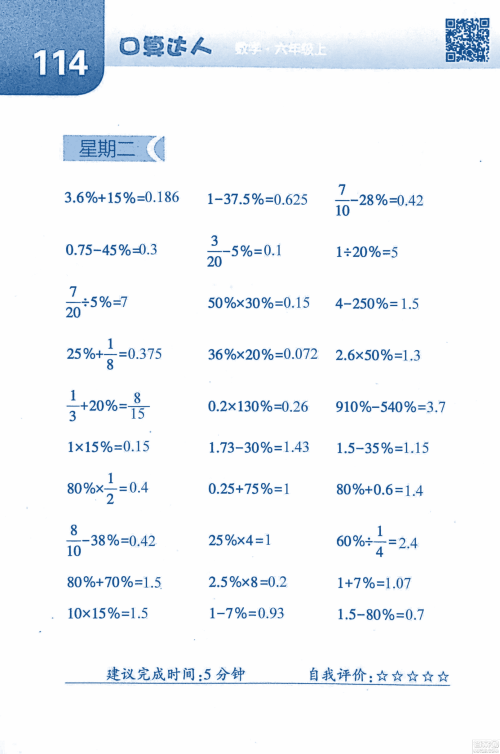 114
口算达人 数学·六年级上
星期二
3.6%+15%=0.186 1-37.5%=0.625 7/10-28%=0.42
0.75-45%=0.3 3/20-5%=0.1 1÷20%=5
7/20÷5%=7 50%×30%=0.15 4-250%=1.5
25%+1/8=0.375 36%×20%=0.072 2.6×50%=1.3
1/3+20%=8/15 0.2×130%=0.26 910%-540%=3.7
1×15%=0.15 1.73-30%=1.43 1.5-35%=1.15
80%×1/2=0.4 0.25+75%=1 80%+0.6=1.4
8/10-38%=0.42 25%×4=1 60%÷1/4=2.4
80%+70%=1.5 2.5%×8=0.2 1+7%=1.07
10×15%=1.5 1-7%=0.93 1.5-80%=0.7
建议完成时间:5分钟 自我评价:☆☆☆☆☆